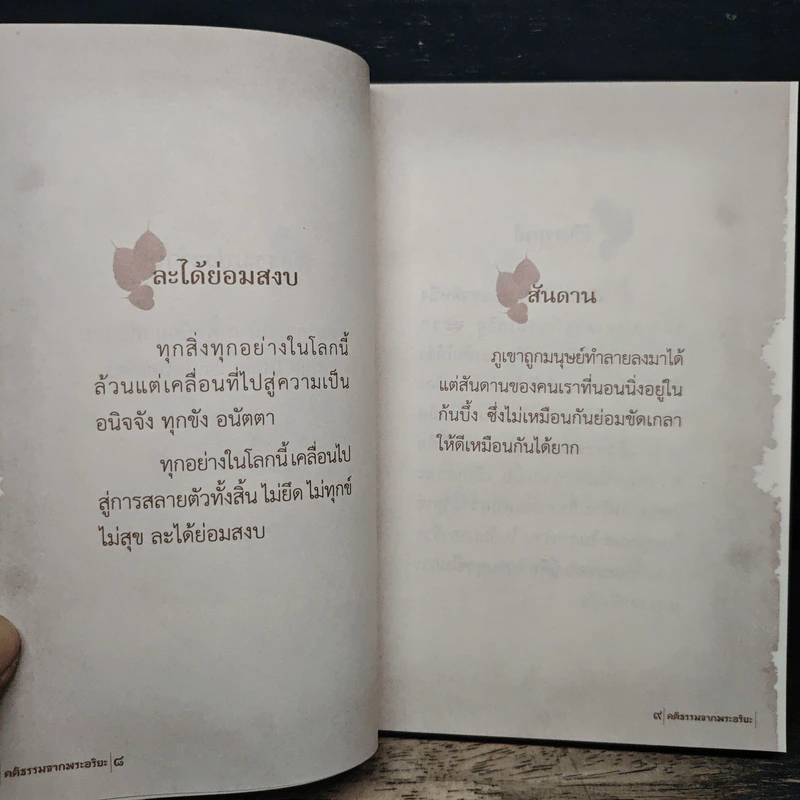 ละได้ย่อมสงบ
ทุกสิ่งทุกอย่างในโลกนี้
ล้วนแต่เคลื่อนที่ไปสู่ความเป็น
อนิจจัง ทุกขัง อนัตตา
ทุกอย่างในโลกนี้ เคลื่อนไป
สู่การสลายตัวทั้งสิ้น ไม่ยึด ไม่ทุกข์
ไม่สุข ละได้ย่อมสงบ
คติธรรมจากพระอริยะ |๘
สันดาน
ภูเขาถูกมนุษย์ทำลายลงมาได้
แต่สันดานของคนเราที่นอนนิ่งอยู่ใน
ก้นบึ้ง ซึ่งไม่เหมือนกันย่อมขัดเกลา
ให้ดีเหมือนกันได้ยาก
๙| คติธรรมจากพระอริยะ|